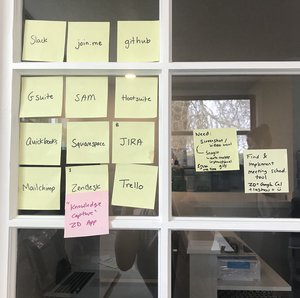 Slack
join.me
github
Gsuite
SAM
Hootsuite
Quickbooks
Squarespace
JIRA
Mailchimp
Zendesk
Trello
"Knowledge
Capture"
ZD App
Need:
Screenshot /
video tool
Snagit
Find &
implement
meeting sched
tool